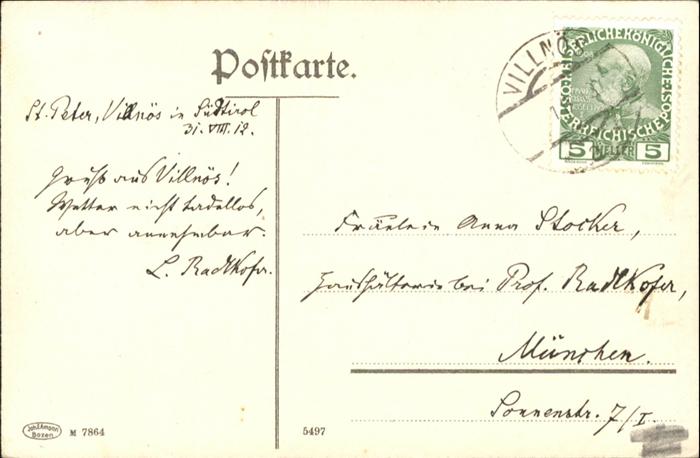 Postkarte.
VILLNÖ
KAISERLICHE KÖNIGLICHE ÖSTERREICHISCHE POST
5 HELLER 5
St. Peter, Villnös in Südtirol
31. VIII. 12.
Gruß aus Villnös!
Wetter nicht tadellos,
aber annehmbar.
L. Radlkofer.
Fräulein Anna Stocker,
Haushälterin bei Prof. Radlkofer,
München.
Sonnenstr. 7/I.
Joh. F. Amonn
Bozen
M 7864
5497